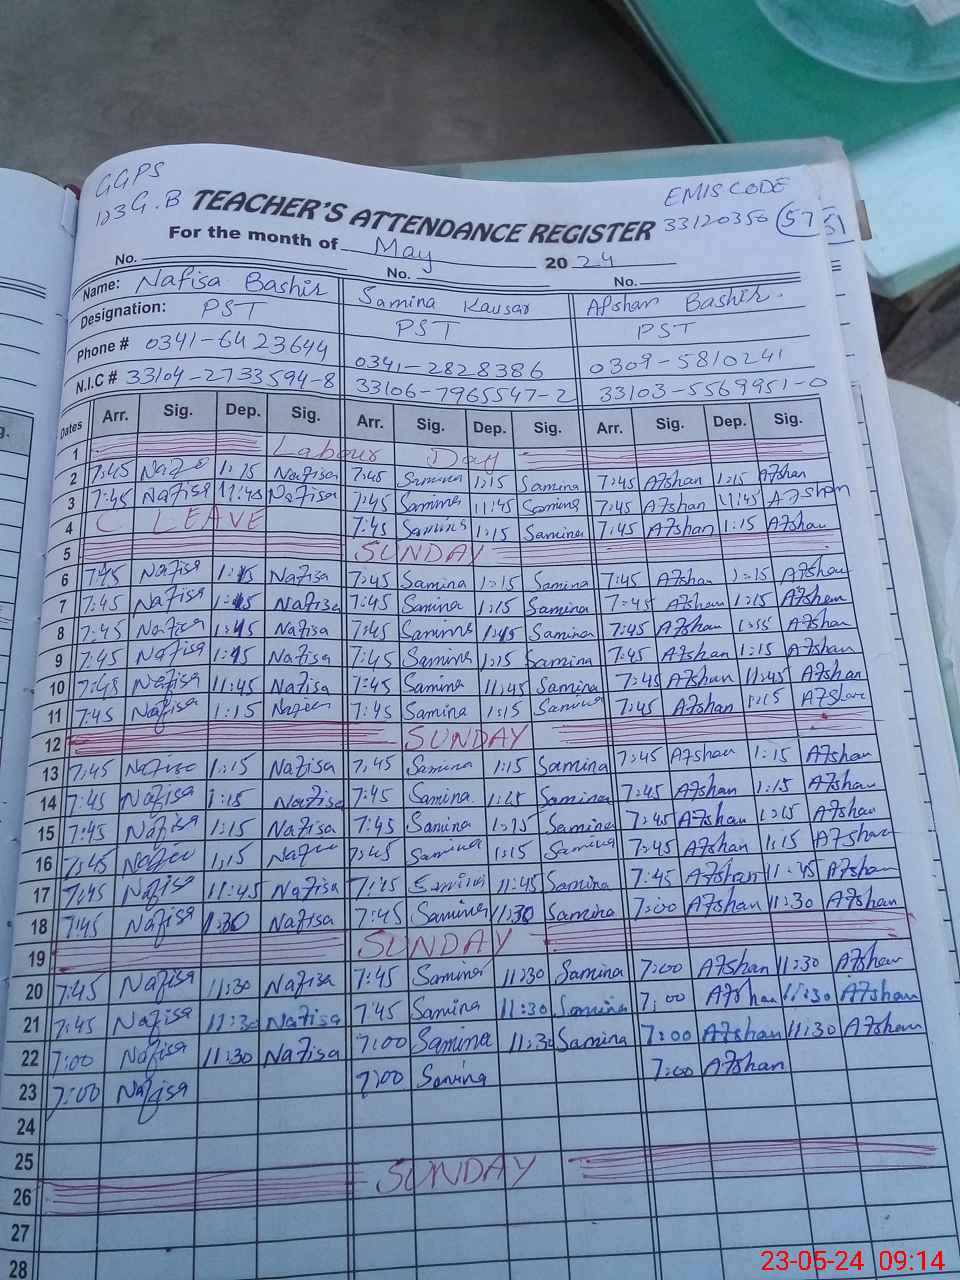 GGPS
123 G.B TEACHER'S ATTENDANCE REGISTER EMIS CODE
For the month of May 2024 33120356 57 51
No. No. No.
Name: Nafisa Bashir Samina Kausar Afshan Bashir.
Designation: PST PST PST
Phone # 0341-6423644 0341-2828386 0309-5810241
N.I.C # 33104-2733594-8 33106-7965547-2 33103-5569951-0
Dates Arr. Sig. Dep. Sig. Arr. Sig. Dep. Sig. Arr. Sig. Dep. Sig.
1 Labour Day
2 7:45 1:15 Nafisa 7:45 Samina 1:15 Samina 7:45 Afshan 1:15 Afshan
3 7:45 Nafisa 11:45 Nafisa 7:45 Samina 11:45 Samina 7:45 Afshan 11:45 Afshan
4 C LEAVE 7:45 Samina 1:15 Samina 7:45 Afshan 1:15 Afshan
5 SUNDAY
6 7:45 Nafisa 1:15 Nafisa 7:45 Samina 1:15 Samina 7:45 Afshan 1:15 Afshan
7 7:45 Nafisa 1:15 Nafisa 7:45 Samina 1:15 Samina 7:45 Afshan 1:15 Afshan
8 7:45 Nafisa Nafisa 7:45 Samina Samina 7:45 Afshan Afshan
9 7:45 Nafisa Nafisa 7:45 Samina 1:15 Samina 7:45 Afshan 1:15 Afshan
10 7:45 Nafisa 11:45 Nafisa 7:45 Samina 11:45 Samina 7:45 Afshan 11:45 Afshan
11 7:45 Nafisa 1:15 7:45 Samina 1:15 Samina 7:45 Afshan 1:15 Afshan
12 SUNDAY
13 7:45 Nafisa 1:15 Nafisa 7:45 Samina 1:15 Samina 7:45 Afshan 1:15 Afshan
14 7:45 Nafisa 1:15 Nafisa 7:45 Samina 1:15 Samina 7:45 Afshan 1:15 Afshan
15 7:45 Nafisa 1:15 Nafisa 7:45 Samina 1:15 Samina 7:45 Afshan 1:15 Afshan
16 7:45 1:15 7:45 Samina 1:15 Samina 7:45 Afshan 1:15 Afshan
17 7:45 Nafisa 11:45 Nafisa Samina 11:45 Samina 7:45 Afshan 11:45 Afshan
18 7:45 Nafisa Nafisa 7:45 Samina 11:30 Samina 7:00 Afshan 11:30 Afshan
19 SUNDAY
20 7:45 Nafisa 11:30 Nafisa 7:45 Samina 11:30 Samina 7:00 Afshan 11:30 Afshan
21 7:45 Nafisa 11:30 Nafisa 7:45 Samina 11:30 Samina 7:00 Afshan 11:30 Afshan
22 7:00 Nafisa 11:30 Nafisa 7:00 Samina 11:30 Samina 7:00 Afshan 11:30 Afshan
23 7:00 Nafisa 7:00 Samina 7:00 Afshan
24
25
26 SUNDAY
27
28
23-05-24 09:14